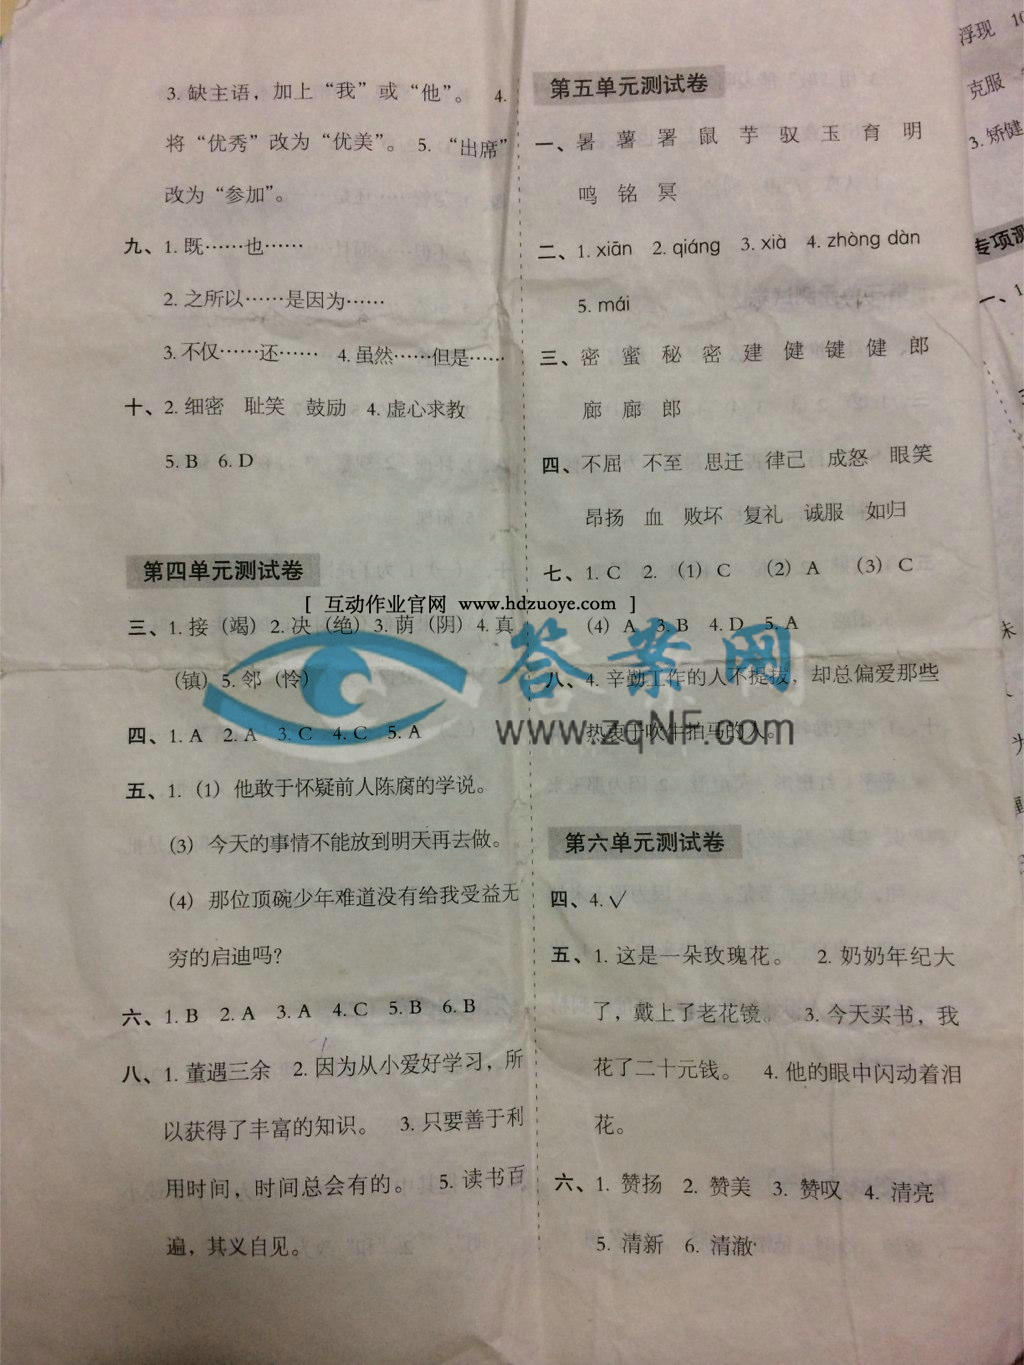 3. 缺主语，加上“我”或“他”。 4.
将“优秀”改为“优美”。 5. “出席”
改为“参加”。
九、1. 既……也……
2. 之所以……是因为……
3. 不仅……还…… 4. 虽然……但是……
十、2. 细密 耻笑 鼓励 4. 虚心求教
5. B 6. D
第四单元测试卷
[ 互动作业官网 www.hdzuoye.com ]
三、1. 接（竭）2. 决（绝）3. 荫（阴）4. 真
（镇）5. 邻（怜）
四、1. A 2. A 3. C 4. C 5. A
五、1.（1）他敢于怀疑前人陈腐的学说。
（3）今天的事情不能放到明天再去做。
（4）那位顶碗少年难道没有给我受益无
穷的启迪吗？
六、1. B 2. A 3. A 4. C 5. B 6. B
八、1. 董遇三余 2. 因为从小爱好学习，所
以获得了丰富的知识。 3. 只要善于利
用时间，时间总会有的。 5. 读书百
遍，其义自见。
第五单元测试卷
一、暑 薯 署 鼠 芋 驭 玉 育 明
鸣 铭 冥
二、1. xiān 2. qiáng 3. xià 4. zhòng dàn
5. mái
三、密 蜜 秘 密 建 健 键 健 郎
廊 廊 郎
四、不屈 不至 思迁 律己 成怒 眼笑
昂扬 血 败坏 复礼 诚服 如归
七、1. C 2.（1）C （2）A （3）C
（4）A 3. B 4. D 5. A
八、4. 辛勤工作的人不提拔，却总偏爱那些
热衷于吹牛拍马的人。
答案网
www.zqNF.com
第六单元测试卷
四、4. √
五、1. 这是一朵玫瑰花。 2. 奶奶年纪大
了，戴上了老花镜。 3. 今天买书，我
花了二十元钱。 4. 他的眼中闪动着泪
花。
六、1. 赞扬 2. 赞美 3. 赞叹 4. 清亮
5. 清新 6. 清澈
浮现
克服
3. 矫健
专项测
一、1